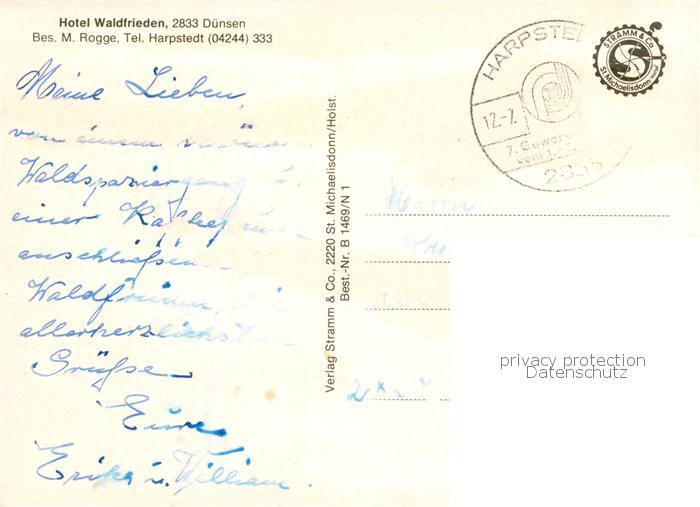 Hotel Waldfrieden, 2833 Dünsen
Bes. M. Rogge, Tel. Harpstedt (04244) 333
Meine Lieben,
von einem
Waldspaziergang u.
einer Kaffee
anschließen
Waldfrieden, die
allerherzlichsten
Grüße
Eure
Erika u. William.
Verlag Stramm & Co., 2220 St. Michaelisdonn/Holst.
Best.-Nr. B 1469/N 1
HARPSTE
12.-7.
7. Gewerb
vom 1
2833
STRAMM & Co
St. Michaelisdonn
Herrn
privacy protection
Datenschutz